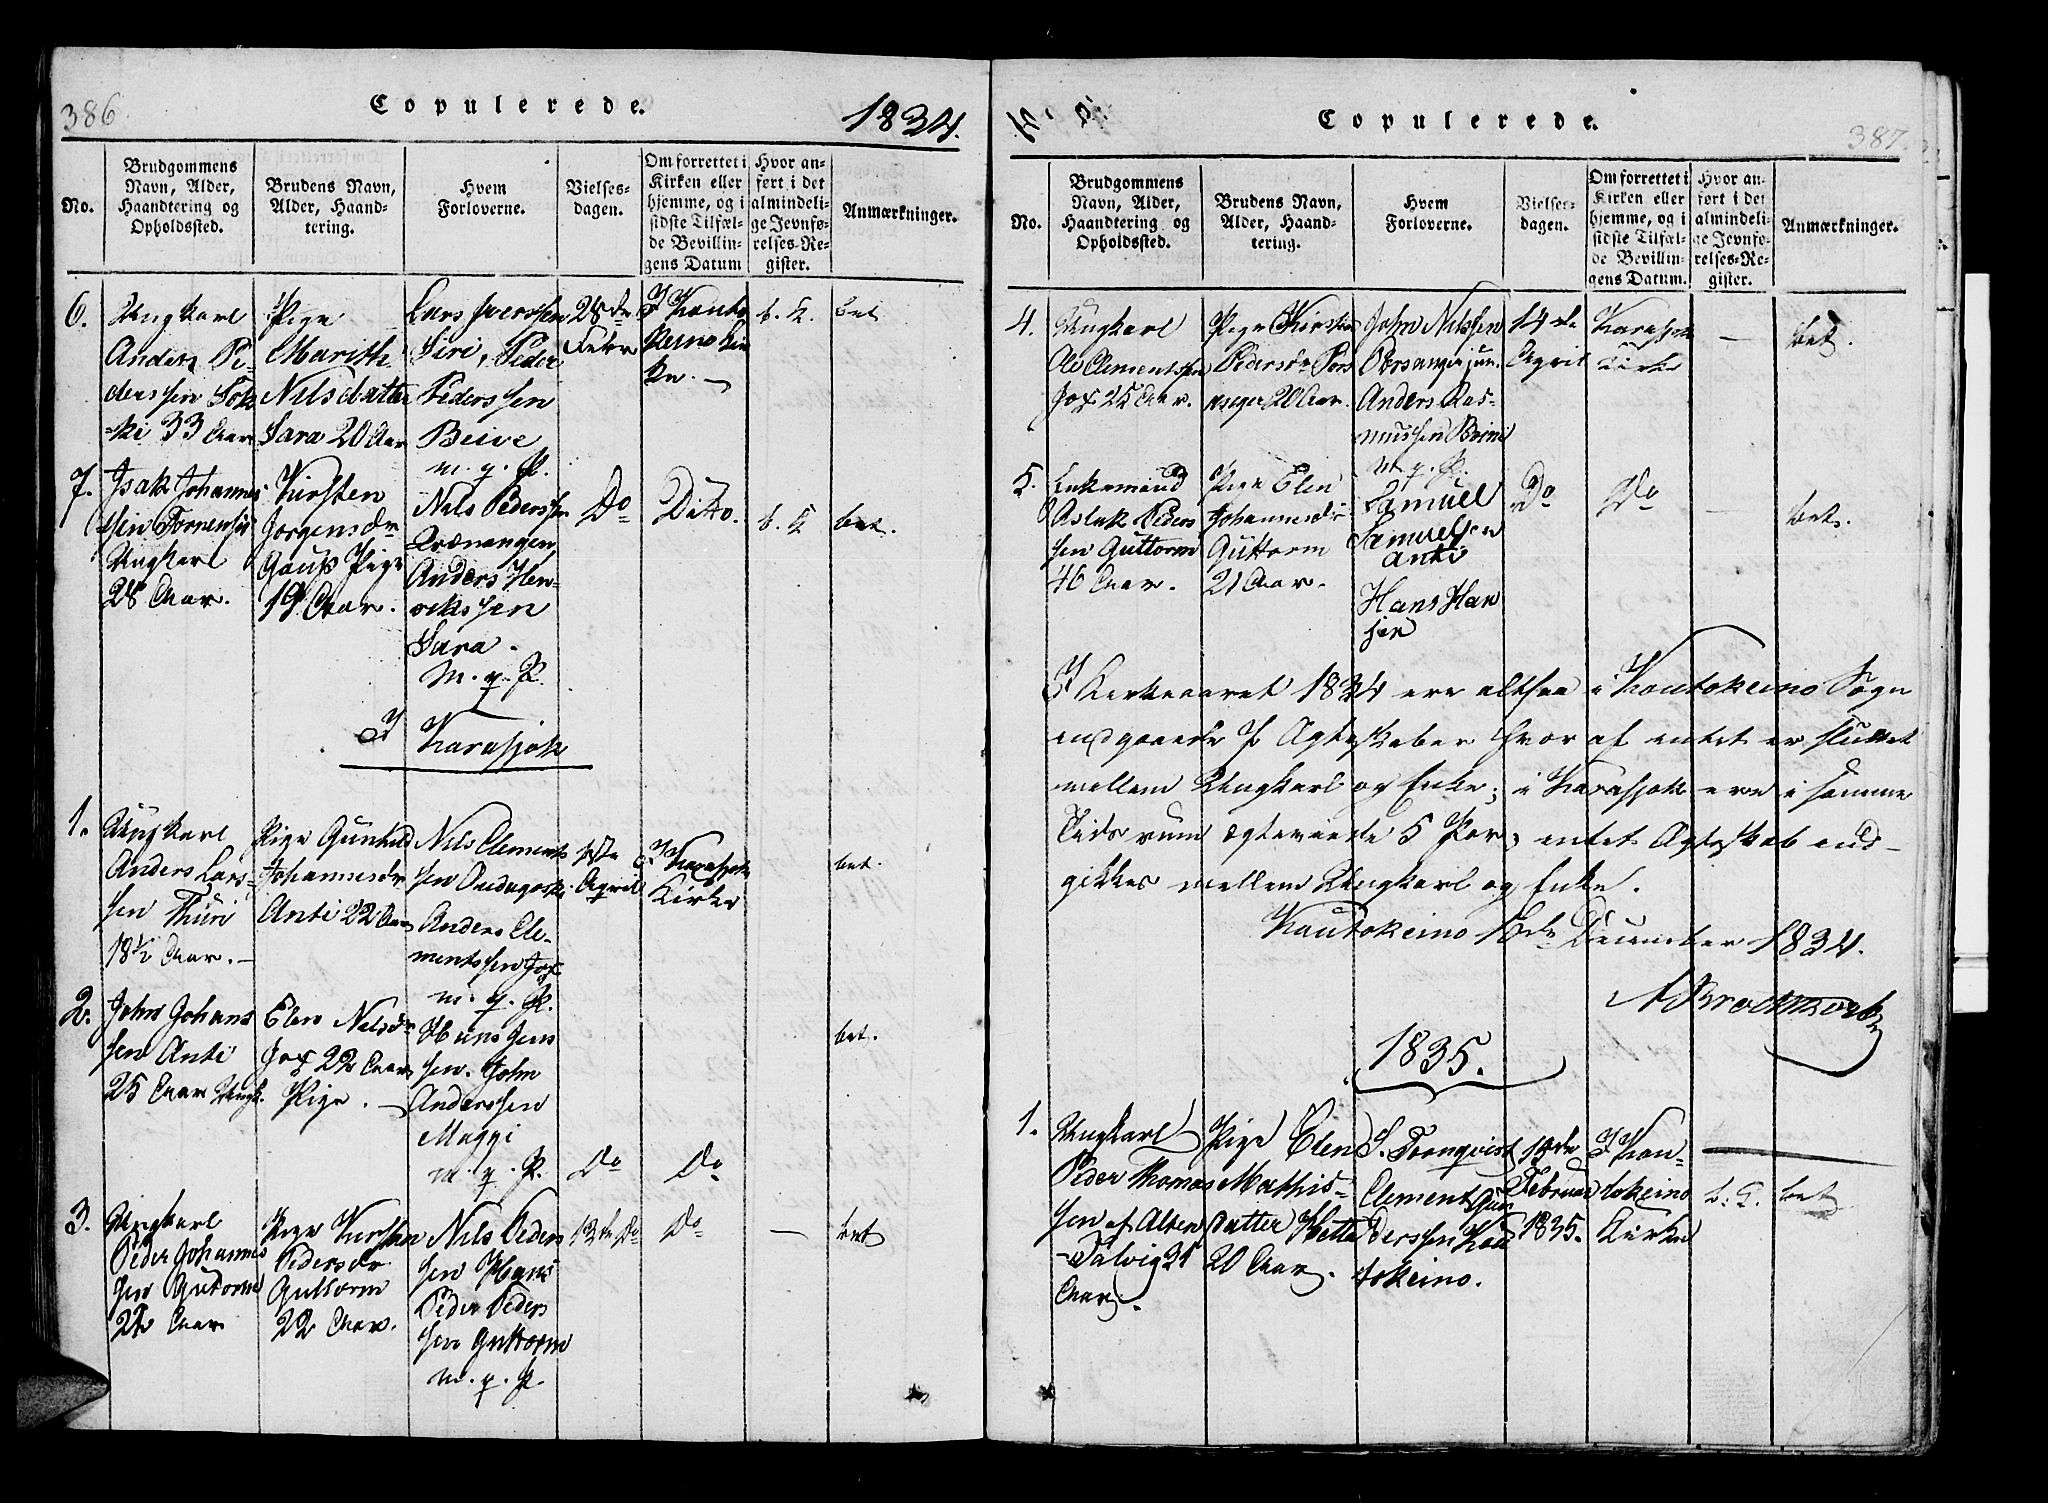 386.
Copulerede.
1834.
No.
Brudgommens
Navn, Alder,
Haandtering og
Opholdssted.
Brudens Navn,
Alder, Haand-
tering.
Hvem
Forloverne.
Vielses-
dagen.
Om forrettet i
Kirken eller
hjemme, og i
sidste Tilfæl-
de Bevillin-
gens Datum
Hvor an-
ført i det
almindeli-
ge Jevnfø-
relses-Re-
gister.
Anmærkninger.
6.
Ungkarl
Anders Pe-
derssen
33 Aar
Pige
Marith
Nilsdatter
Sara 20 Aar
Lars Iverssen
Siri, Peder
Pederssen
Beive
m. q. P.
28de
Febr
I Kauto
keino Kir
ke. -
bet
7.
Isak Johannes-
sen
Ungkarl
28 Aar.
Kirsten
Jorgensdr
Gaup Pige
19 Aar.
Nils Pederssen
Qvænangen
Anders Hen-
rikssen
Sara.
m. q. P.
Do
Ditto.
bet.
I Karasjok
1.
Ungkarl
Anders Lars-
sen Thuri
18½ Aar. -
Pige Gunhild
Johannesdr
Anti 22 Aar
Nils Clements
sen
Anders Cle-
mentssen Jox
m. q. P.
April
I Karasjok
Kirke
bet.
2.
John Johans
sen Anti
25 Aar Ungk.
Elen Nilsdr
Jox 22 Aar
Pige. -
Hans Jens
sen. John
Anderssen
Maggi
m. q. P.
Do
Do
bet.
3.
Ungkarl
Peder Johannes
sen Guttorm
Aar
Pige Kirsten
Pedersdr
Guttorm
22 Aar.
Nils Peders
sen Hans
Peder Peders
sen Guttorm
m. q. P.
13de Do
Do
-
bet
Copulerede.
387.
No.
Brudgommens
Navn, Alder,
Haandtering og
Opholdssted.
Brudens Navn,
Alder, Haand-
tering.
Hvem
Forloverne.
Vielses-
dagen.
Om forrettet i
Kirken eller
hjemme, og i
sidste Tilfæl-
de Bevillin-
gens Datum.
Hvor an-
ført i det
almindeli-
ge Jevnfø-
relses-Re-
gister.
Anmærkninger.
4.
Ungkarl
Ole Clementssen
Jox 25 Aar.
Pige Kirsten
Pedersdr Pors
anger 20 Aar.
John Nilssen
Porsanger jun.
Anders Ras-
mussen
m. q. P.
14de
April
Karasjok
Kirke
-
bet.
5.
Enkemand
Aslak Peders
sen Guttorm
46 Aar.
Pige Elen
Johannesdr
Guttorm
21 Aar.
Samuel
Samuelsen
Anti
Hans Han
sen
Do
Do
-
bet.
I Kirkeaaret 1834 ere altsaa i Kautokeino Sogn
indgaaede 7 Ægteskaber hvoraf intet er sluttet
mellem Ungkarl og Enke; i Karasjok ere i samme
Tidsrum ægteviede 5 Par; intet Ægteskab ind-
gikkes mellem Ungkarl og Enke.
Kautokeino December 1834.
1835.
1.
Ungkarl
Peder Thomas
sen af Alten
-Talvig
Aar.
Pige Elen
Mathis-
datter Hætta
20 Aar.
S. Tornqvist
Clement Gun
derssen Kau
tokeino.
Februar
1835.
I Kau-
tokeino
Kirke
bet